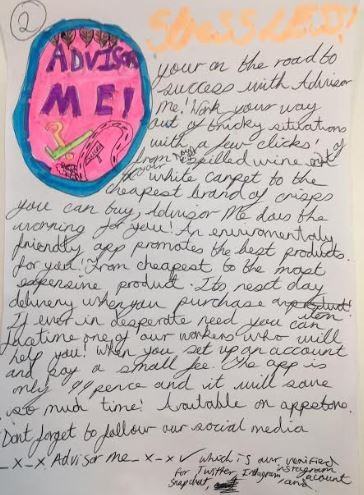 2
STRESS LESS!
ADVISOR
ME!
your on the road to
success with Advisor
me! Work your way
out of tricky situations
with a few clicks!
from spilled wine
white carpet to the
cheapest brand of crisps
you can buy, Advisor Me does the
worrying for you! An enviromentaly
friendly app promotes the best products
for you! From cheapest to the most
expensine product. Its next day
delivery when you purchase an item
If ever in desperate need you can
facetime one of our workers who will
help you! When you set up an account
and pay a small fee. The app is
only 99 pence and it will save
so much time! Available on appstore.
Dont forget to follow our social media
_x_x Advisor me_x-x✓ which is our verified
for Twitter, Instagram
Snapchat, and